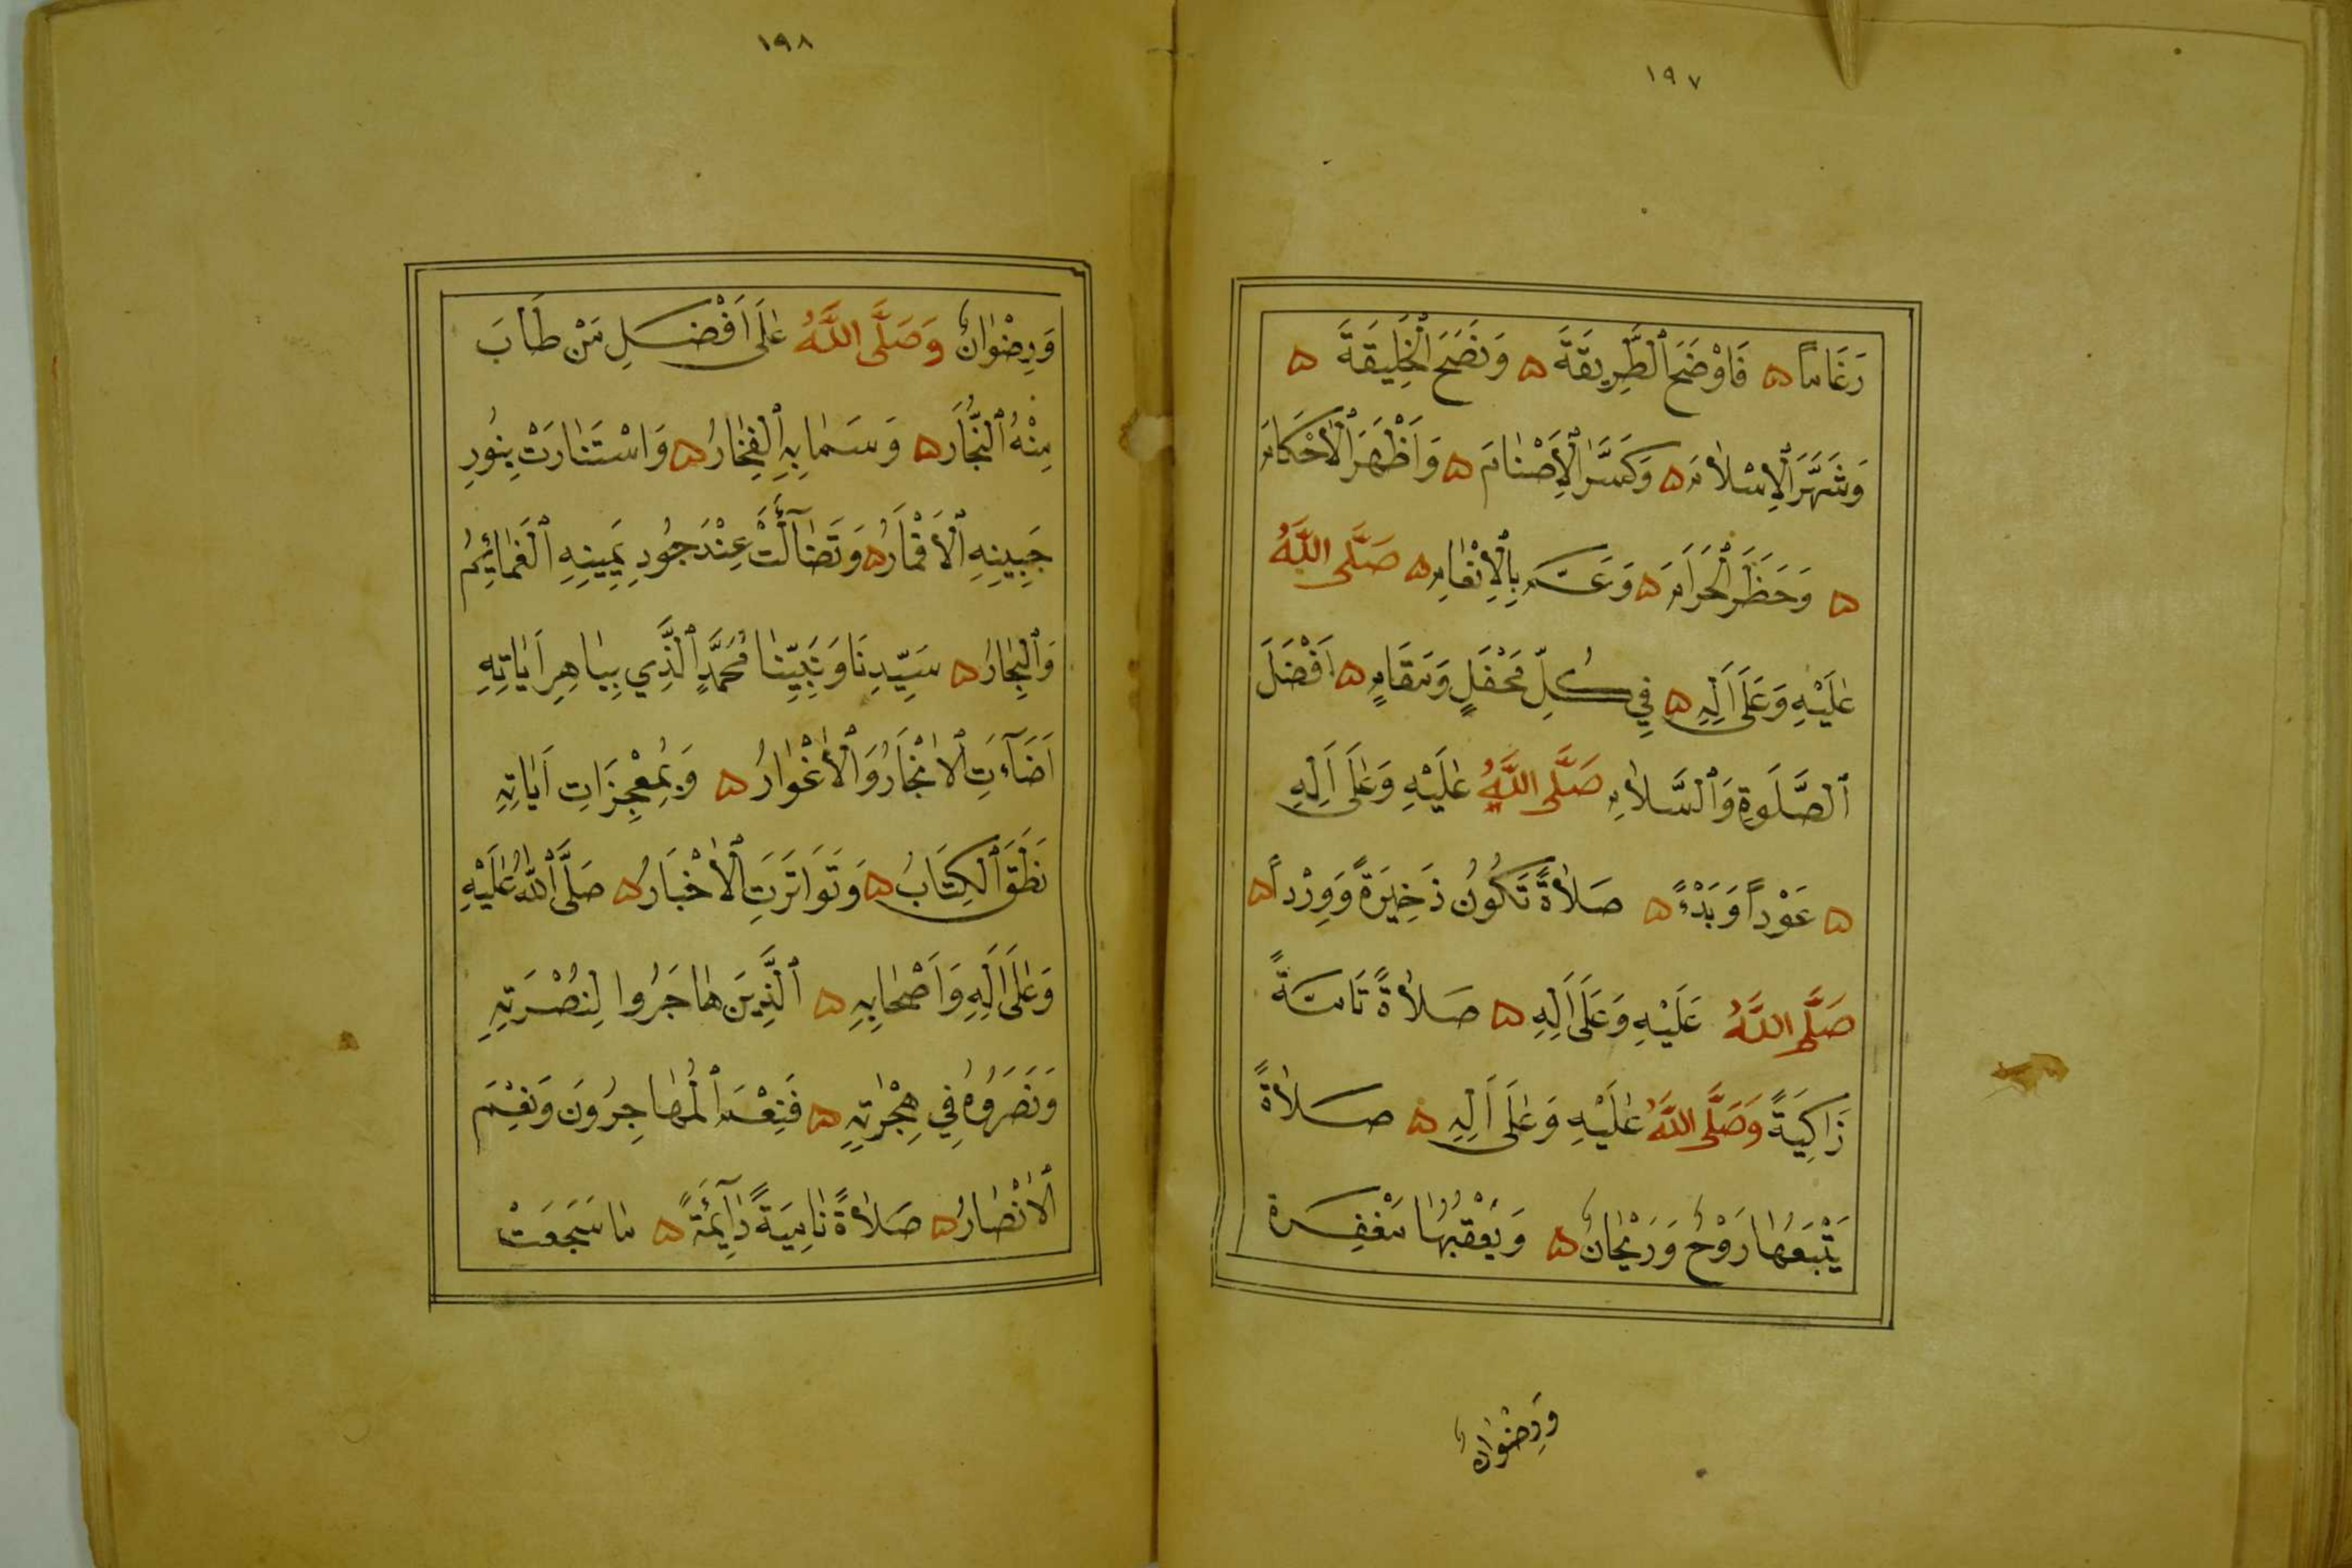 ١٩٧
رَغَامًا ۵ فَاَوْضَحَ ٱلطَّرِيقَةَ ۵ وَنَصَحَ ٱلْخَلِيقَةَ ۵
وَشَهَّرَ ٱلْاِسْلَامَ ۵ وَكَسَّرَ ٱلْاَصْنَامَ ۵ وَاَظْهَرَ ٱلْاَحْكَامَ
۵ وَحَظَرَ ٱلْحَرَامَ ۵ وَعَمَّ بِٱلْاِنْعَامِ ۵ صَلَّى اللَّهُ
عَلَيْهِ وَعَلَى اَلِهِ ۵ فِي كُلِّ مَحْفَلٍ وَمَقَامٍ ۵ اَفْضَلَ
ٱلصَّلَوةِ وَٱلسَّلَامِ صَلَّى اللَّهُ عَلَيْهِ وَعَلَى اَلِهِ
۵ عَوْداً وَبَدْءً ۵ صَلَاةً تَكُونُ ذَخِيرَةً وَوِرْداً ۵
صَلَّى اللَّهُ عَلَيْهِ وَعَلَى اَلِهِ ۵ صَلَاةً تَامَّةً
زَاكِيَةً وَصَلَّى اللَّهُ عَلَيْهِ وَعَلَى اَلِهِ ۵ صَلَاةً
يَتْبَعُهَا رَوْحٌ وَرَيْحَانٌ ۵ وَيَعْقُبُهَا مَغْفِرَة
وَرِضْوَانٌ
١٩٨
وَرِضْوَانٌ وَصَلَّى اللَّهُ عَلَى اَفْضَلِ مَنْ طَابَ
مِنْهُ ٱلنُّجَارُ ۵ وَسَمَا بِهِ ٱلْفِخَارُ ۵ وَاسْتَنَارَتْ بِنُورِ
جَبِينِهِ ٱلْاَقْمَارُ ۵ وَتَضَآئَلَتْ عِنْدَ جُودِ يَمِينِهِ ٱلْغَمَائِمُ
وَٱلْبِحَارُ ۵ سَيِّدِنَا وَنَبِيِّنَا مُحَمَّدٍ ٱلَّذِي بِبَاهِرِ اَيَاتِهِ
اَضَآءَتِ ٱلْاَنْجَادُ وَٱلْاَغْوَارُ ۵ وَبِمُعْجِزَاتِ اَيَاتِهِ
نَطَقَ ٱلْكِتَابُ ۵ وَتَوَاتَرَتِ ٱلْاَخْبَارُ ۵ صَلَّى ٱللَّهُ عَلَيْهِ
وَعَلَى اَلِهِ وَاَصْحَابِهِ ۵ ٱلَّذِينَ هَاجَرُوا لِنُصْرَتِهِ
وَنَصَرُوهُ فِي هِجْرَتِهِ ۵ فَنِعْمَ ٱلْمُهَاجِرُونَ وَنِعْمَ
ٱلْاَنْصَارُ ۵ صَلَاةً نَامِيَةً دَآئِمَةً ۵ مَا سَجَعَتْ